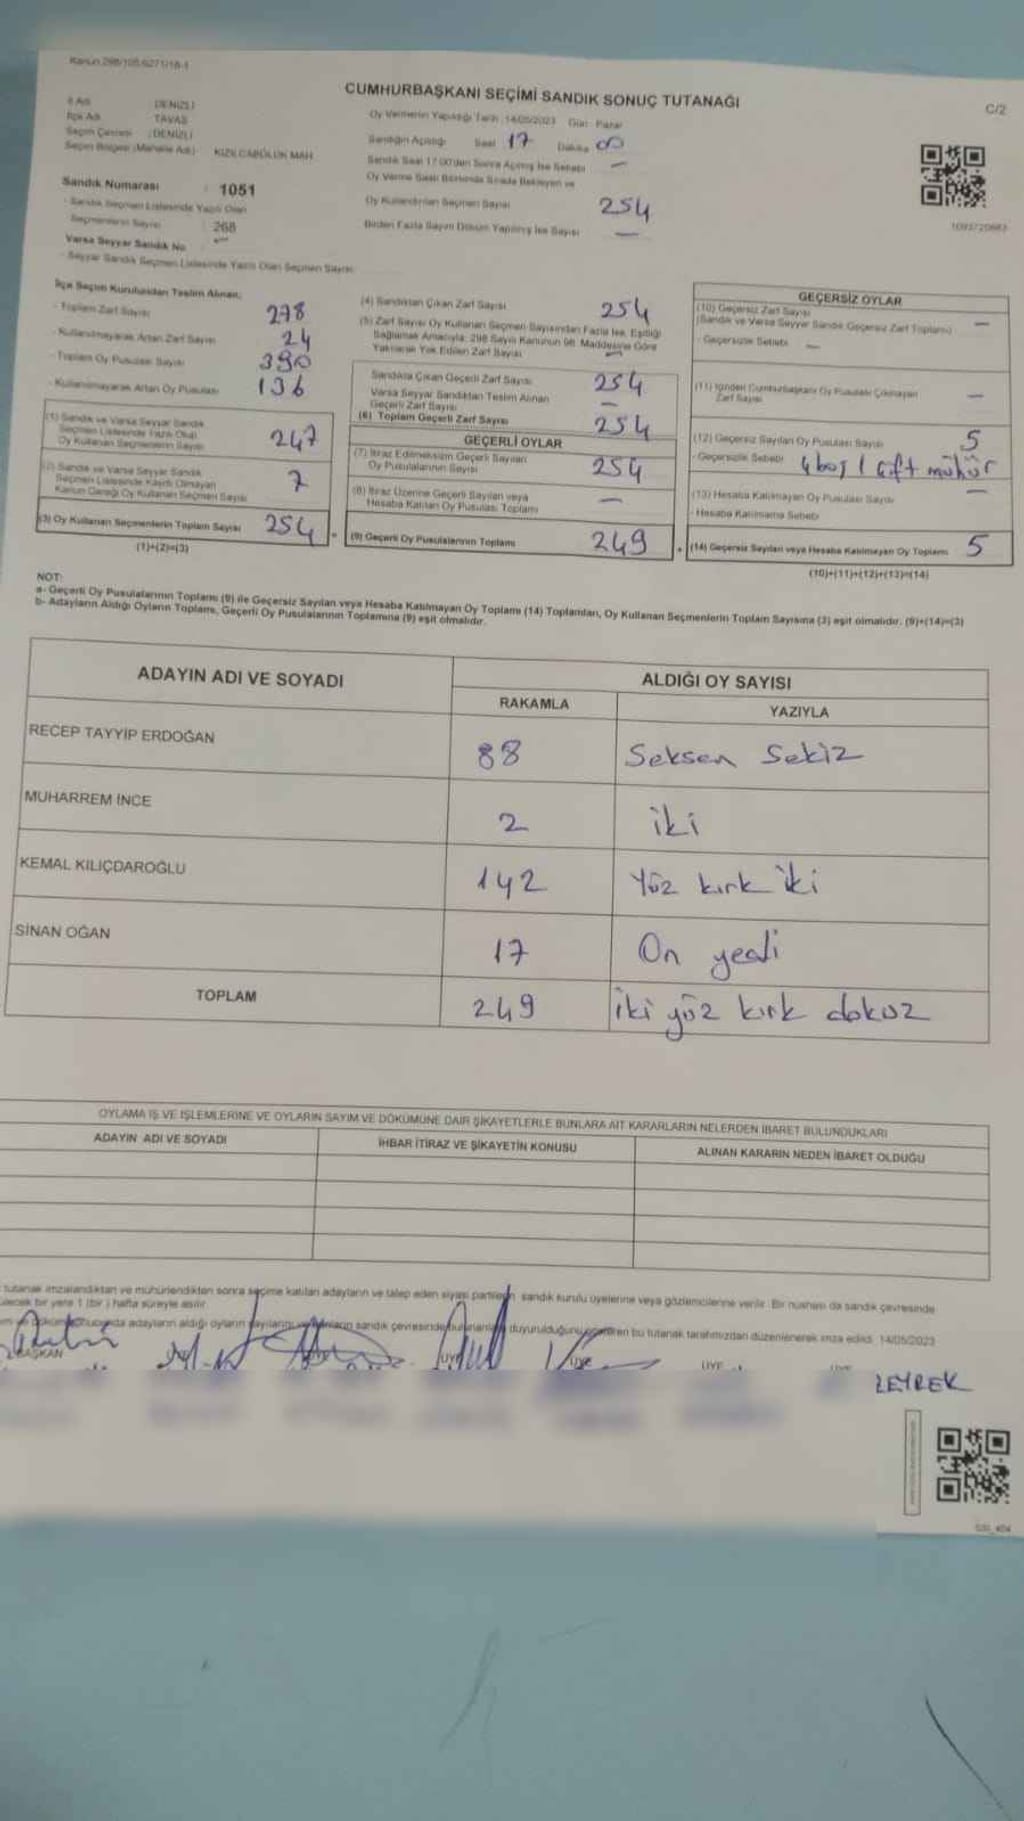 Kanun 298/105,6271/18-1
CUMHURBAŞKANI SEÇİMİ SANDIK SONUÇ TUTANAĞI
C/2
İl Adı DENİZLİ
İlçe Adı TAVAS
Seçim Çevresi : DENİZLİ
Seçim Bölgesi (Mahalle Adı) KIZILCABÖLÜK MAH
Sandık Numarası : 1051
- Sandık Seçmen Listesinde Yazılı Olan
Seçmenlerin Sayısı : 268
Varsa Seyyar Sandık No
- Seyyar Sandık Seçmen Listesinde Yazılı Olan Seçmen Sayısı
Oy Vermenin Yapıldığı Tarih 14/05/2023 Gün: Pazar
Sandığın Açıldığı Saat 17 Dakika
Sandık Saat 17.00'den Sonra Açılmış İse Sebebi —
Oy Verme Saati Bitiminde Sırada Bekleyen ve
Oy Kullandırılan Seçmen Sayısı 254
Birden Fazla Sayım Döküm Yapılmış İse Sayısı —
İlçe Seçim Kurulundan Teslim Alınan;
- Toplam Zarf Sayısı 278
- Kullanılmayarak Artan Zarf Sayısı 24
- Toplam Oy Pusulası Sayısı 390
- Kullanılmayarak Artan Oy Pusulası 136
(1) Sandık ve Varsa Seyyar Sandık
Seçmen Listesinde Yazılı Olup
Oy Kullanan Seçmenlerin Sayısı 247
(2) Sandık ve Varsa Seyyar Sandık
Seçmen Listesinde Kayıtlı Olmayan
Kanun Gereği Oy Kullanan Seçmen Sayısı 7
(3) Oy Kullanan Seçmenlerin Toplam Sayısı 254
(1)+(2)=(3)
(4) Sandıktan Çıkan Zarf Sayısı 254
(5) Zarf Sayısı Oy Kullanan Seçmen Sayısından Fazla İse, Eşitliği
Sağlamak Amacıyla; 298 Sayılı Kanunun 98. Maddesine Göre
Yakılarak Yok Edilen Zarf Sayısı —
Sandıkta Çıkan Geçerli Zarf Sayısı 254
Varsa Seyyar Sandıktan Teslim Alınan
Geçerli Zarf Sayısı —
(6) Toplam Geçerli Zarf Sayısı 254
GEÇERLİ OYLAR
(7) İtiraz Edilmeksizin Geçerli Sayılan
Oy Pusulalarının Sayısı 254
(8) İtiraz Üzerine Geçerli Sayılan veya
Hesaba Katılan Oy Pusulası Toplamı —
(9) Geçerli Oy Pusulalarının Toplamı 249
GEÇERSİZ OYLAR
(10) Geçersiz Zarf Sayısı
(Sandık ve Varsa Seyyar Sandık Geçersiz Zarf Toplamı) —
- Geçersizlik Sebebi —
(11) İçinden Cumhurbaşkanı Oy Pusulası Çıkmayan
Zarf Sayısı —
(12) Geçersiz Sayılan Oy Pusulası Sayısı 5
- Geçersizlik Sebebi 4 boş 1 çift mühür
(13) Hesaba Katılmayan Oy Pusulası Sayısı —
- Hesaba Katılmama Sebebi
(14) Geçersiz Sayılan veya Hesaba Katılmayan Oy Toplamı 5
(10)+(11)+(12)+(13)=(14)
NOT:
a- Geçerli Oy Pusulalarının Toplamı (9) ile Geçersiz Sayılan veya Hesaba Katılmayan Oy Toplamı (14) Toplamları, Oy Kullanan Seçmenlerin Toplam Sayısına (3) eşit olmalıdır. (9)+(14)=(3)
b- Adayların Aldığı Oyların Toplamı, Geçerli Oy Pusulalarının Toplamına (9) eşit olmalıdır.
ADAYIN ADI VE SOYADI ALDIĞI OY SAYISI
RAKAMLA YAZIYLA
RECEP TAYYİP ERDOĞAN 88 Seksen Sekiz
MUHARREM İNCE 2 iki
KEMAL KILIÇDAROĞLU 142 Yüz kırk iki
SİNAN OĞAN 17 On yedi
TOPLAM 249 İki yüz kırk dokuz
OYLAMA İŞ VE İŞLEMLERİNE VE OYLARIN SAYIM VE DÖKÜMÜNE DAİR ŞİKAYETLERLE BUNLARA AİT KARARLARIN NELERDEN İBARET BULUNDUKLARI
ADAYIN ADI VE SOYADI İHBAR İTİRAZ VE ŞİKAYETİN KONUSU ALINAN KARARIN NEDEN İBARET OLDUĞU
tutanak imzalandıktan ve mühürlendikten sonra seçime katılan adayların ve talep eden siyasi partilerin sandık kurulu üyelerine veya gözlemcilerine verilir. Bir nüshası da sandık çevresinde
bir yere 1 (bir) hafta süreyle asılır.
adayların aldığı oyların sayılarını sandık çevresinde bulunanlara duyurulduğunu gösteren bu tutanak tarafımızdan düzenlenerek imza edildi. 14/05/2023
BAŞKAN ÜYE ÜYE ÜYE
ZEYREK